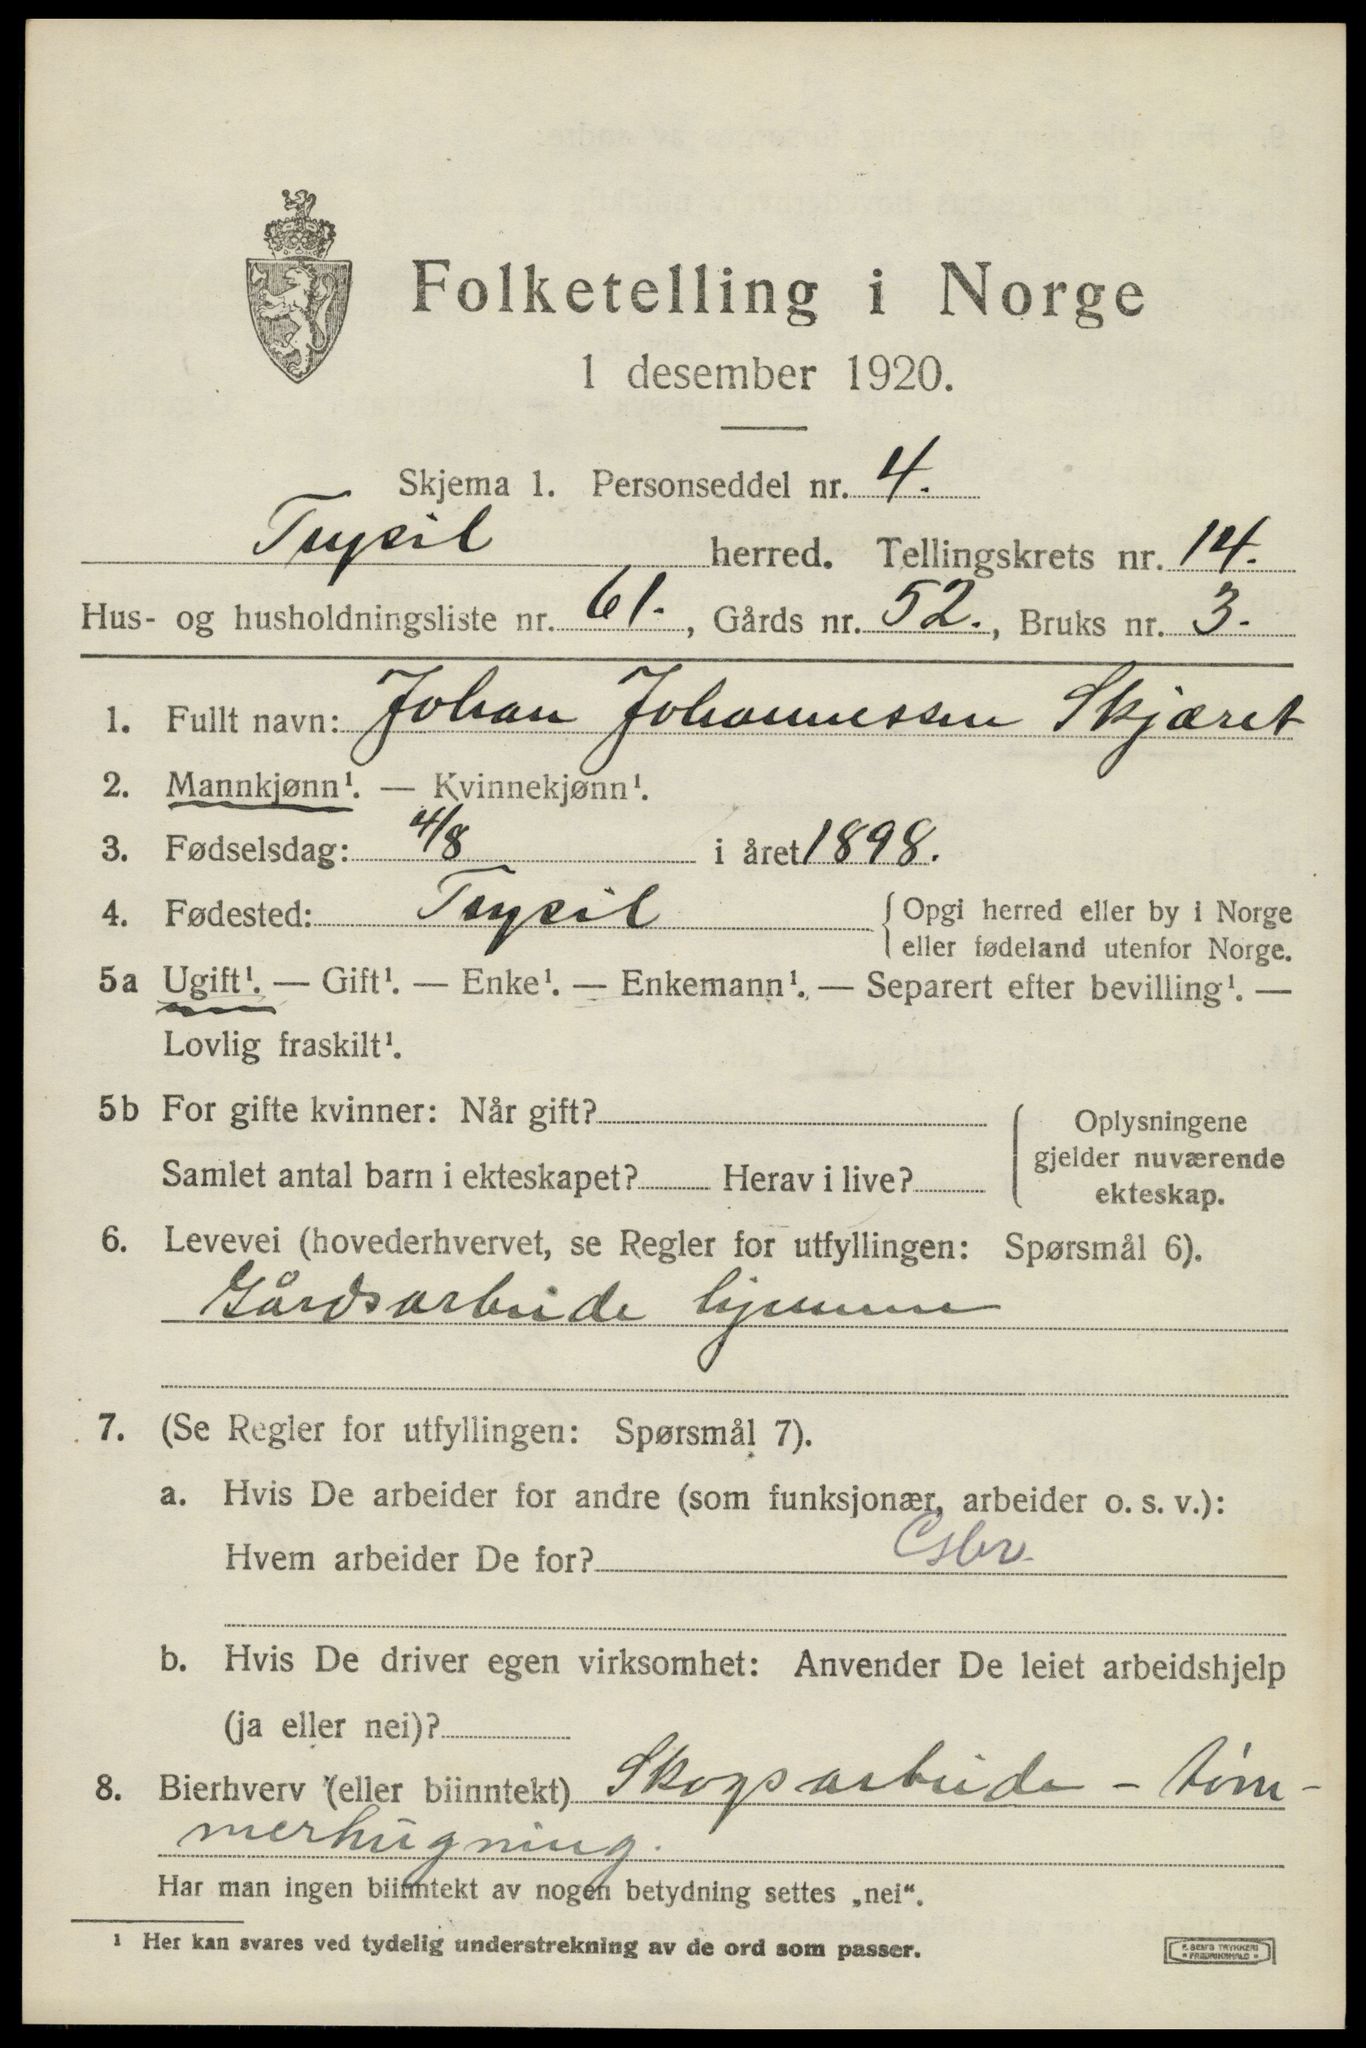 Folketelling i Norge
1 desember 1920.
Skjema 1. Personseddel nr. 4.
Trysil herred. Tellingskrets nr. 14.
Hus- og husholdningsliste nr. 61., Gårds nr. 52., Bruks nr. 3.
1. Fullt navn: Johan Johannessen Skjæret
2. Mannkjønn¹. — Kvinnekjønn¹.
3. Fødselsdag: 4/8 i året 1898.
4. Fødested: Trysil { Opgi herred eller by i Norge
eller fødeland utenfor Norge.
5a Ugift¹. — Gift¹. — Enke¹. — Enkemann¹. — Separert efter bevilling¹. —
Lovlig fraskilt¹.
5b For gifte kvinner: Når gift?
Samlet antal barn i ekteskapet? Herav i live?
Oplysningene
gjelder nuværende
ekteskap.
6. Levevei (hovederhvervet, se Regler for utfyllingen: Spørsmål 6).
Gårdsarbeide hjemme
7. (Se Regler for utfyllingen: Spørsmål 7).
a. Hvis De arbeider for andre (som funksjonær, arbeider o. s. v.):
Hvem arbeider De for?
b. Hvis De driver egen virksomhet: Anvender De leiet arbeidshjelp
(ja eller nei)?
8. Bierhverv (eller biinntekt) Skogsarbeide - tøm-
merhugning.
Har man ingen biinntekt av nogen betydning settes „nei“.
¹ Her kan svares ved tydelig understrekning av de ord som passer.